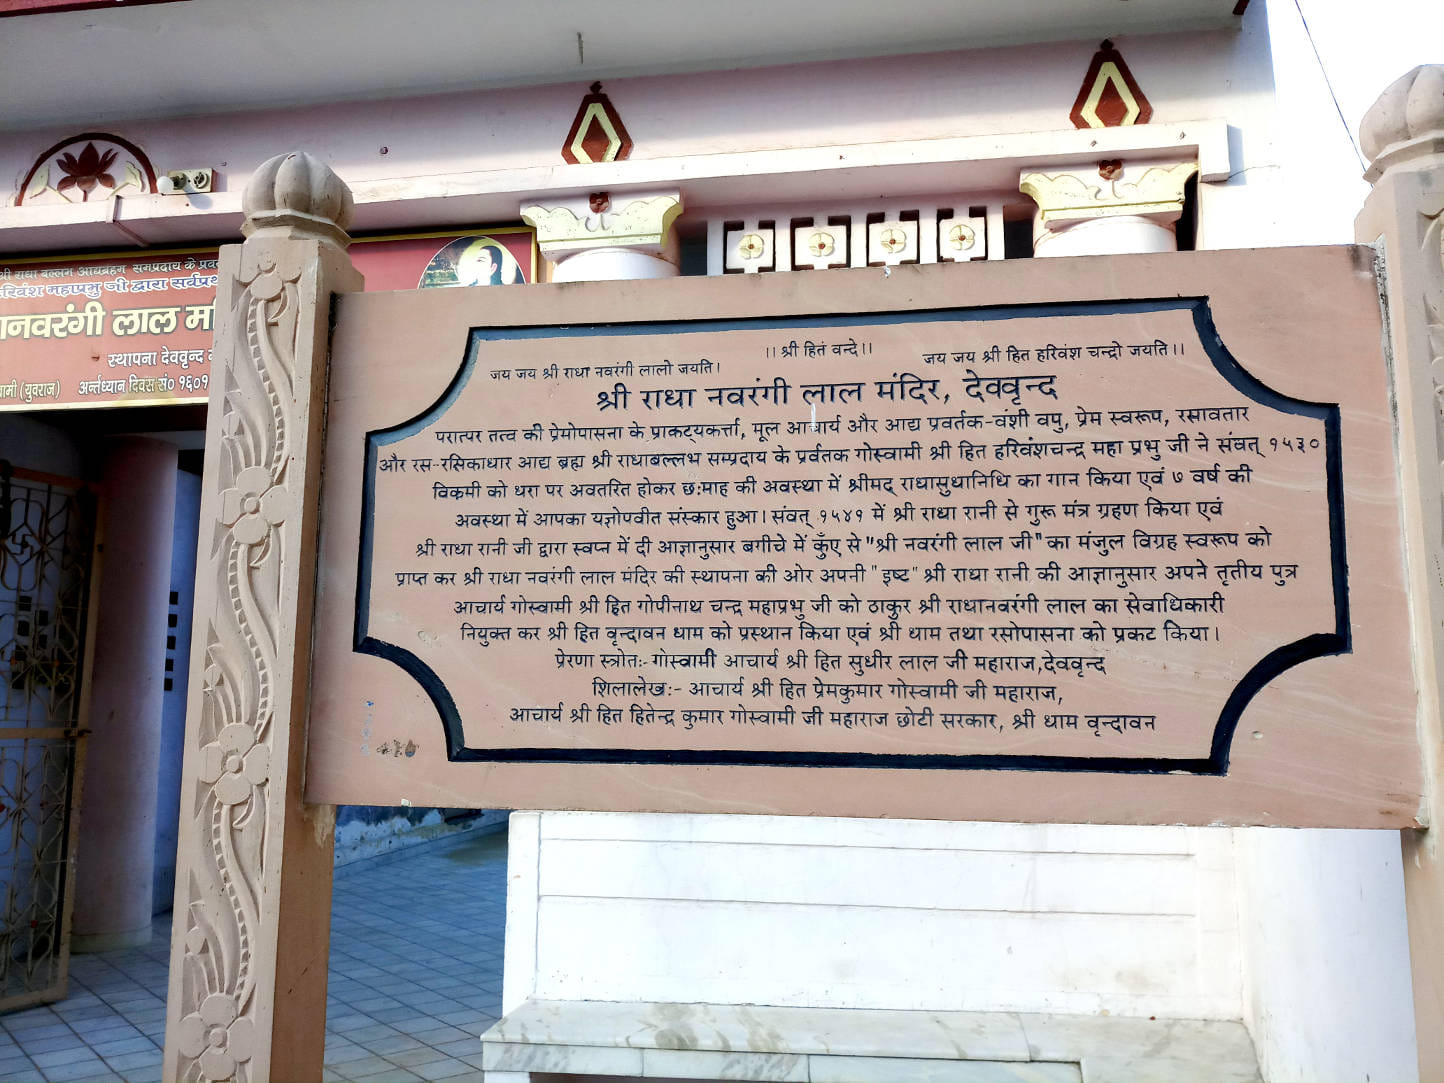 श्री राधा बल्लभ आद्यब्रहम सम्प्रदाय के
महाप्रभु जी द्वारा
नवरंगी लाल
स्थापना देववृन्द
(युवराज) अर्न्तध्यान दिवस सं० १६०१
।। श्री हितं वन्दे।।
जय जय श्री राधा नवरंगी लालो जयति। जय जय श्री हित हरिवंश चन्द्रो जयति।।
श्री राधा नवरंगी लाल मंदिर, देववृन्द
परात्पर तत्व की प्रेमोपासना के प्राकट्यकर्त्ता, मूल आचार्य और आद्य प्रवर्तक-वंशी वपु, प्रेम स्वरूप, रसावतार
और रस-रसिकाधार आद्य ब्रह्म श्री राधाबल्लभ सम्प्रदाय के प्रर्वतक गोस्वामी श्री हित हरिवंशचन्द्र महा प्रभु जी ने संवत् १५३०
विक्रमी को धरा पर अवतरित होकर छःमाह की अवस्था में श्रीमद् राधासुधानिधि का गान किया एवं ७ वर्ष की
अवस्था में आपका यज्ञोपवीत संस्कार हुआ। संवत् १५४१ में श्री राधा रानी से गुरू मंत्र ग्रहण किया एवं
श्री राधा रानी जी द्वारा स्वप्न में दी आज्ञानुसार बगीचे में कुँए से "श्री नवरंगी लाल जी" का मंजुल विग्रह स्वरूप को
प्राप्त कर श्री राधा नवरंगी लाल मंदिर की स्थापना की ओर अपनी "इष्ट" श्री राधा रानी की आज्ञानुसार अपने तृतीय पुत्र
आचार्य गोस्वामी श्री हित गोपीनाथ चन्द्र महाप्रभु जी को ठाकुर श्री राधानवरंगी लाल का सेवाधिकारी
नियुक्त कर श्री हित वृन्दावन धाम को प्रस्थान किया एवं श्री धाम तथा रसोपासना को प्रकट किया।
प्रेरणा स्त्रोतः- गोस्वामी आचार्य श्री हित सुधीर लाल जी महाराज,देववृन्द
शिलालेखः- आचार्य श्री हित प्रेमकुमार गोस्वामी जी महाराज,
आचार्य श्री हित हितेन्द्र कुमार गोस्वामी जी महाराज छोटी सरकार, श्री धाम वृन्दावन